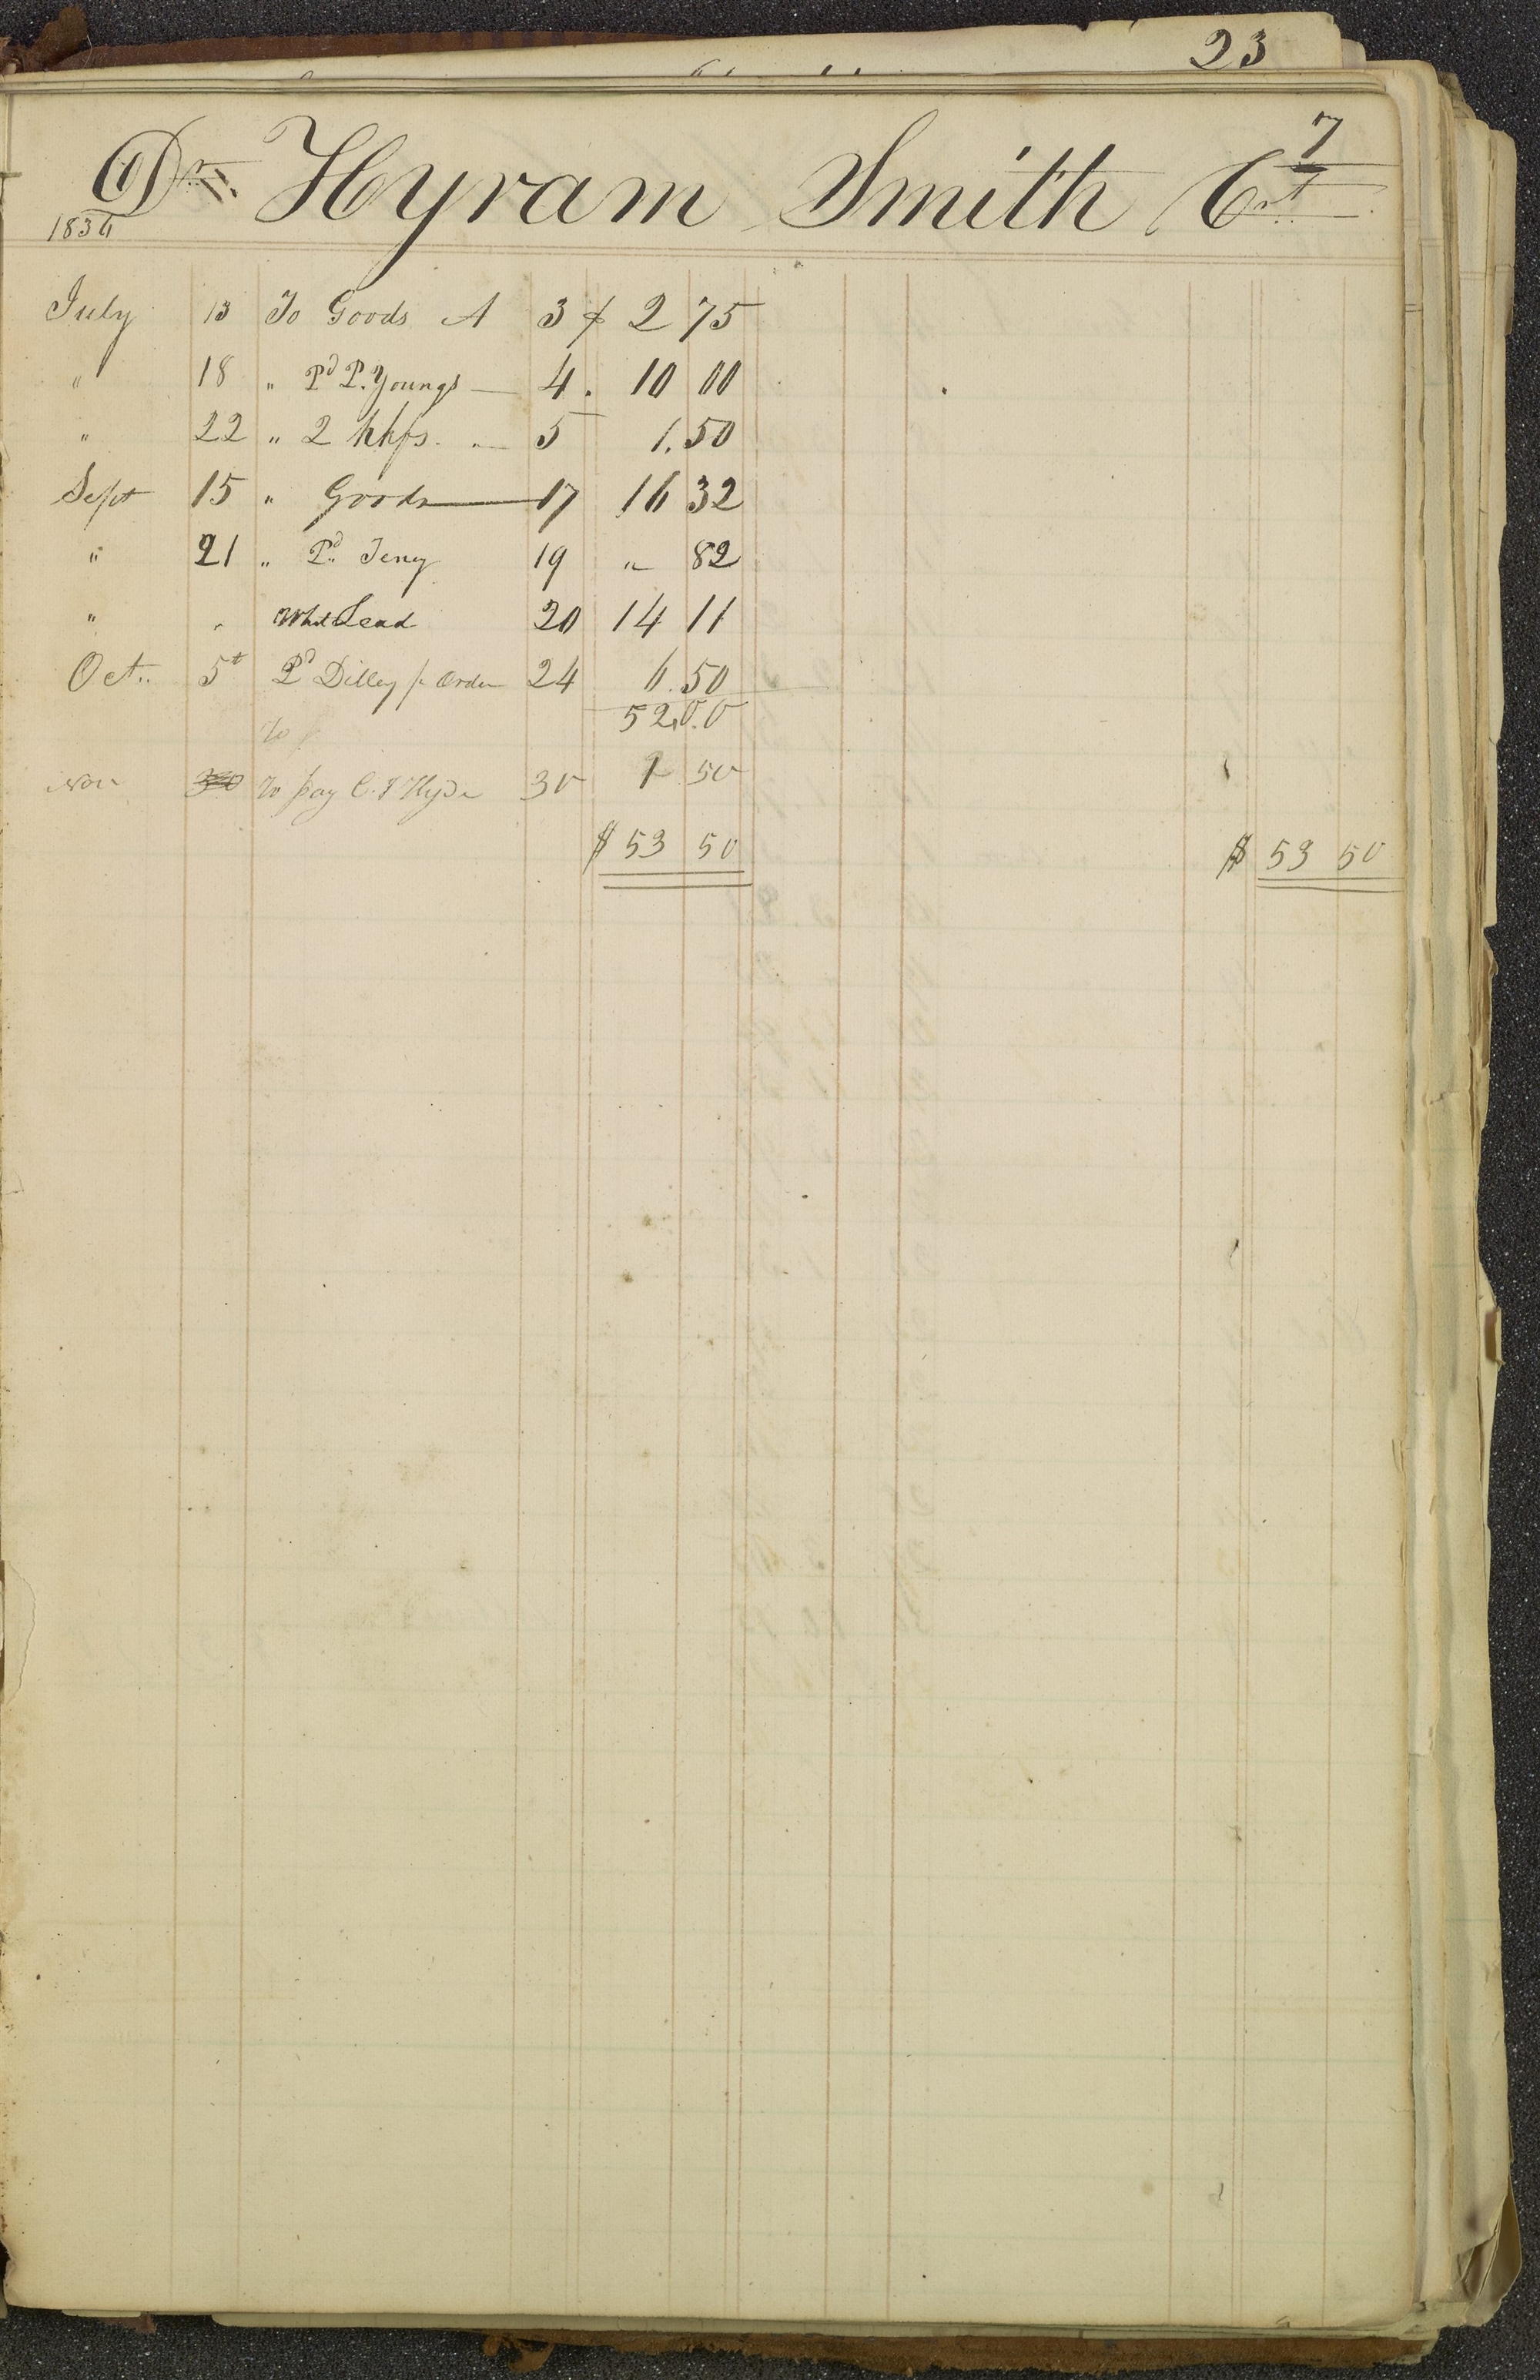 23
7
Dr. Hyram Smith Crt
1836
July 13 To Goods A 3 $ 2 75
" 18 " Pd P. Youngs — 4. 10 00
" 22 " 2 hkfs. " — 5 1.50
Sept 15 " Goods — 17 16 32
" 21 " Pd. 19 " 82
" " White Lead 20 14 11
Oct.. 5t Pd Dilley pr Order 24 6.50
52,0.0
To
Nov To pay C. I Hyde 30 1 50
$ 53 50 $ 53 50